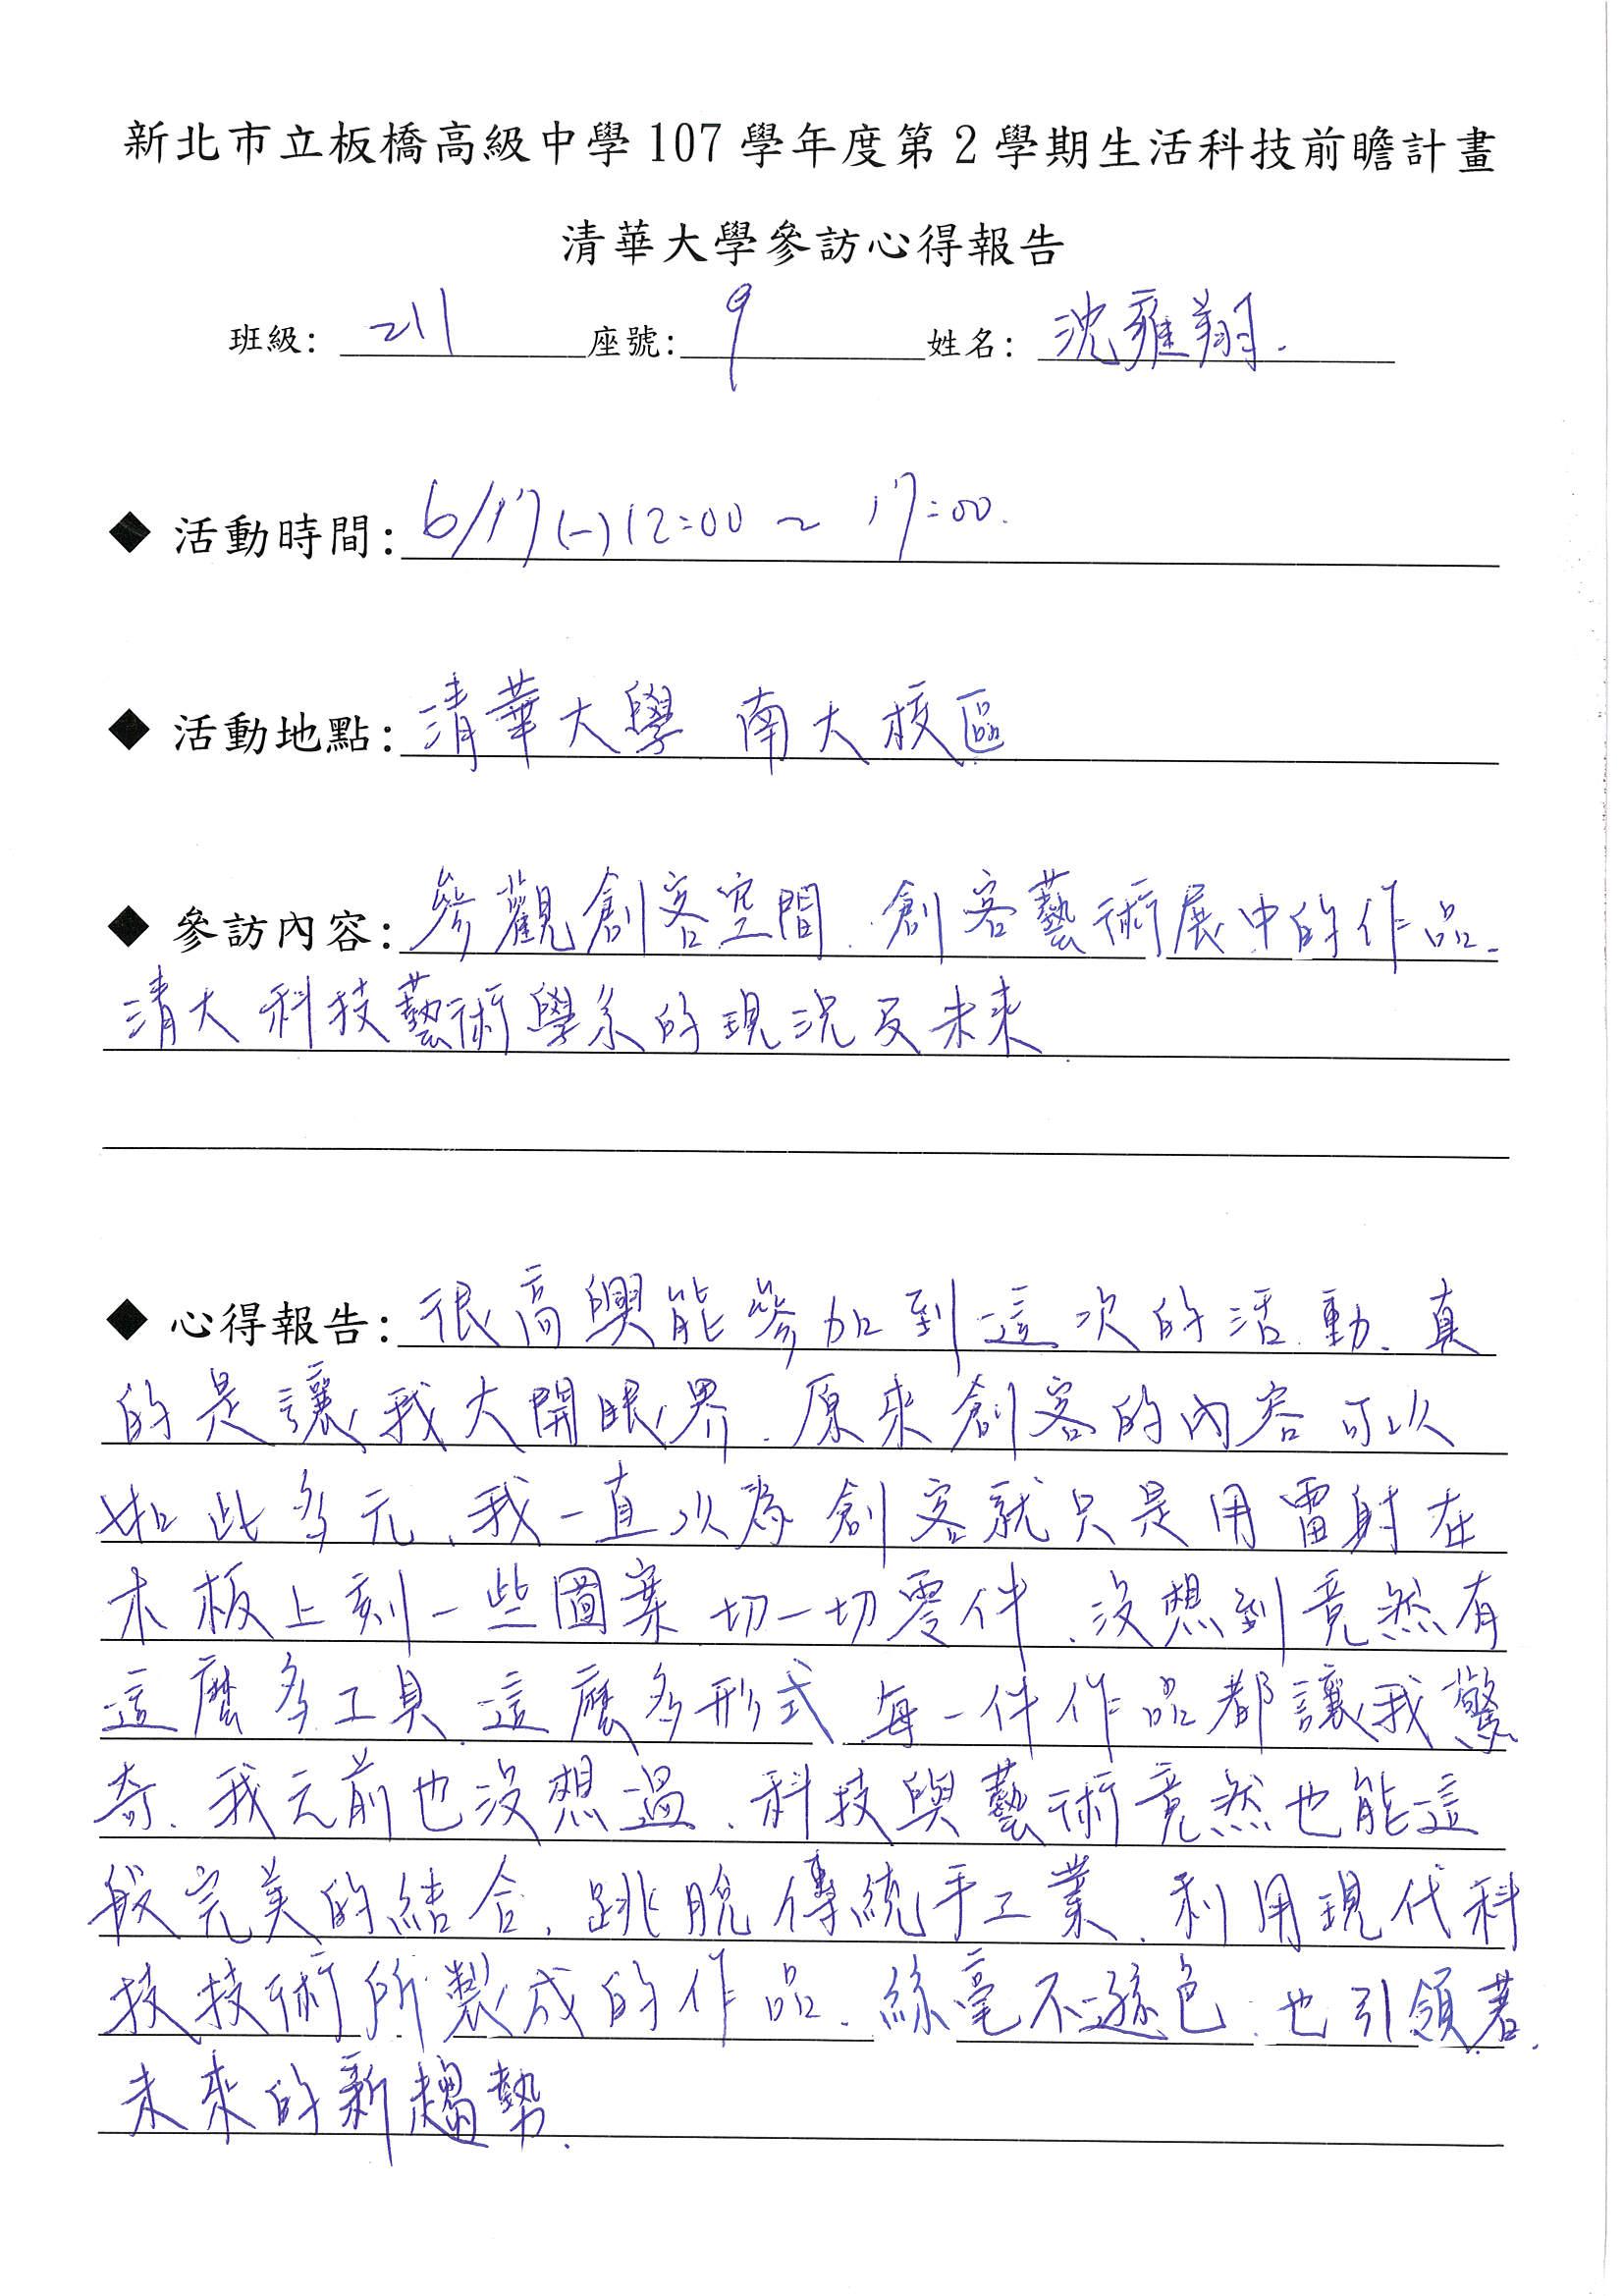 新北市立板橋高級中學107學年度第2學期生活科技前瞻計畫
清華大學參訪心得報告
班級: 211 座號: 9 姓名: 沈雍翔.
◆ 活動時間: 6/17(一)12:00~17:00.
◆ 活動地點: 清華大學 南大校區
◆ 參訪內容: 參觀創客空間、創客藝術展中的作品、
清大科技藝術學系的現況及未來
◆ 心得報告: 很高興能參加到這次的活動、真
的是讓我大開眼界、原來創客的內容可以
如此多元、我一直以為創客就只是用雷射在
木板上刻一些圖案切一切零件、沒想到竟然有
這麼多工具、這麼多形式、每一件作品都讓我驚
奇、我之前也沒想過、科技與藝術竟然也能這
般完美的結合、跳脫傳統手工業、利用現代科
技技術所製成的作品、絲毫不遜色、也引領著、
未來的新趨勢、